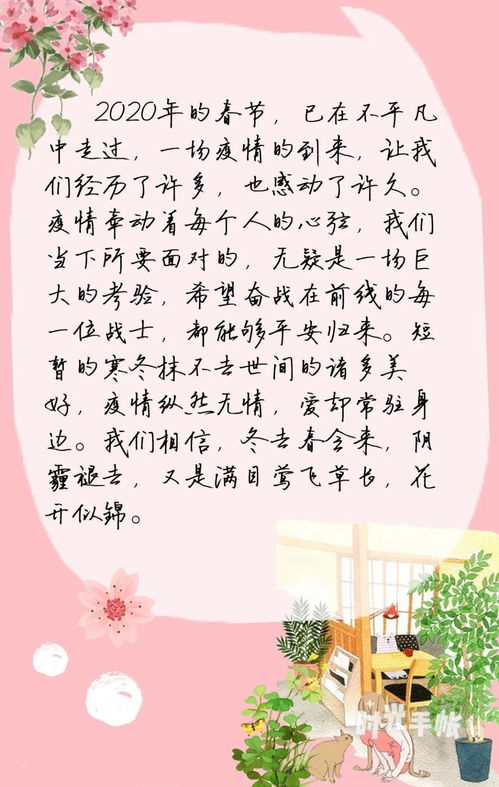 2020年的春节，已在不平凡
中走过，一场疫情的到来，让我
们经历了许多，也感动了许久。
疫情牵动着每个人的心弦，我们
当下所要面对的，无疑是一场巨
大的考验，希望奋战在前线的每
一位战士，都能够平安归来。短
暂的寒冬抹不去世间的诸多美
好，疫情纵然无情，爱却常驻身
边。我们相信，冬去春会来，阴
霾褪去，又是满目莺飞草长，花
开似錦。
时光手帐